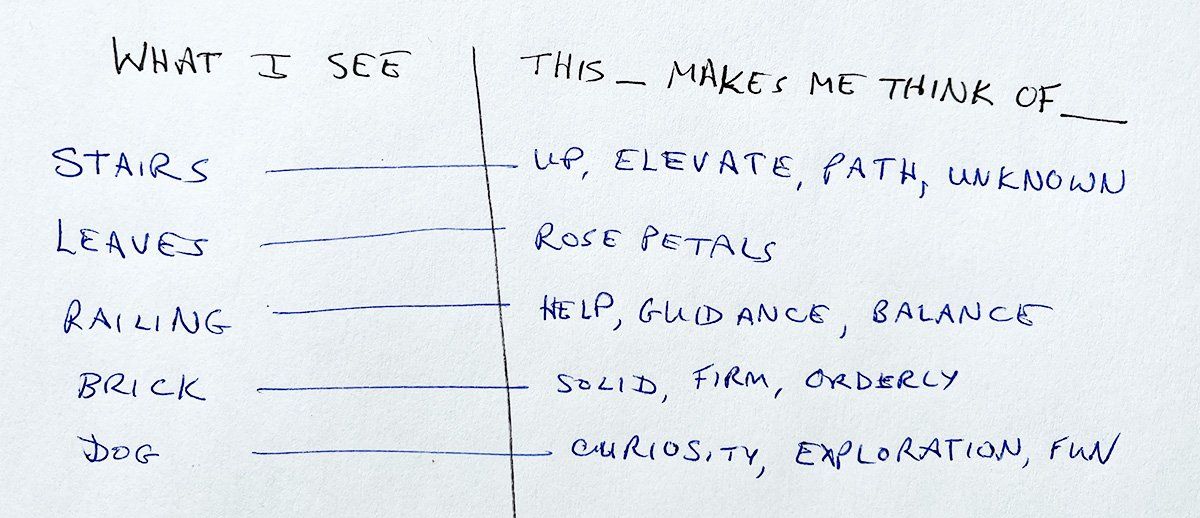 WHAT I SEE
THIS _ MAKES ME THINK OF __
STAIRS UP, ELEVATE, PATH, UNKNOWN
LEAVES ROSE PETALS
RAILING HELP, GUIDANCE, BALANCE
BRICK SOLID, FIRM, ORDERLY
DOG CURIOSITY, EXPLORATION, FUN